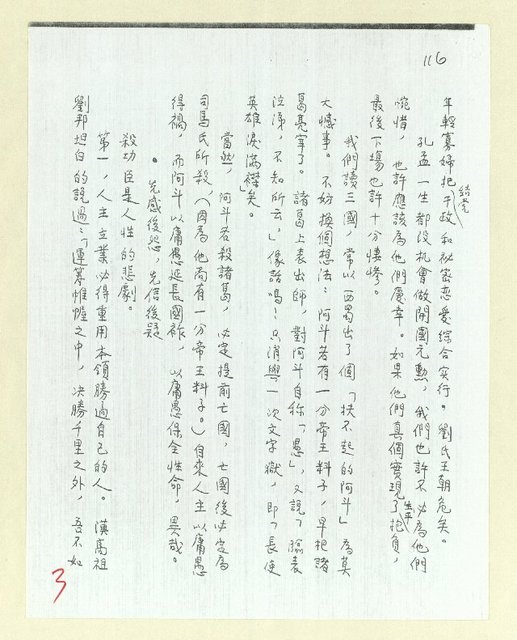 116
年輕寡婦把干政和祕密戀愛綜合實行。劉氏王朝危矣。
孔孟一生都沒機會做開國元勲，我們也許不必為他們
惋惜，也許應該為他們慶幸。如果他們真個實現了生平抱負，
最後下場也許十分悽慘。
我們讀三國，常以西蜀出了個「扶不起的阿斗」為莫
大憾事。不妨換個想法：阿斗若有一分帝王料子，早把諸
葛亮宰了。諸葛上表出師，對阿斗自称「愚」，又說「臨表
泣涕，不知所云」，像話嗎！只消興一次文字獄，即「長使
英雄淚滿襟」矣。
當然，阿斗若殺諸葛，必定提前亡國，亡國後必定為
司馬氏所殺，（因為他尚有一分帝王料子。）自來人主以庸愚
得禍，而阿斗以庸愚延長國祚，以庸愚保全性命，異哉。
。先感後怨，先信後疑
殺功臣是人性的悲劇。
第一，人主立業必得重用本領勝過自己的人。漢高祖
劉邦坦白的說過：「運籌惟幄之中，決勝千里之外，吾不如
3